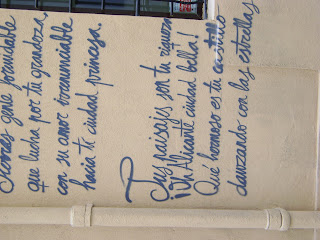 Tienes gente formidable
que lucha por tu grandeza,
con su amor irrenunciable
hacia ti ciudad princesa.
Tus paisajes son tu riqueza
¡Oh Alicante ciudad bella!
Qué hermoso es tu castillo
danzando con las estrellas